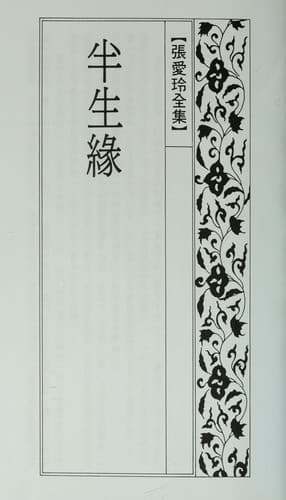 【張愛玲全集】
半生緣